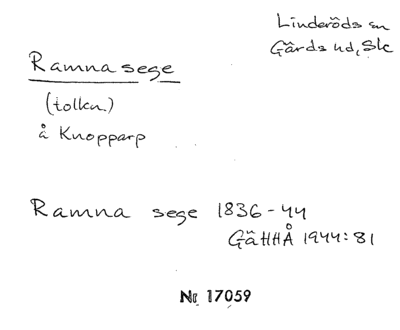 Linderöds sn
Gärds hd, Skc
Ramna sege
(tolkn.)
å Knopparp
Ramna sege 1836-44
GäHHÅ 1944:81
Nr 17059